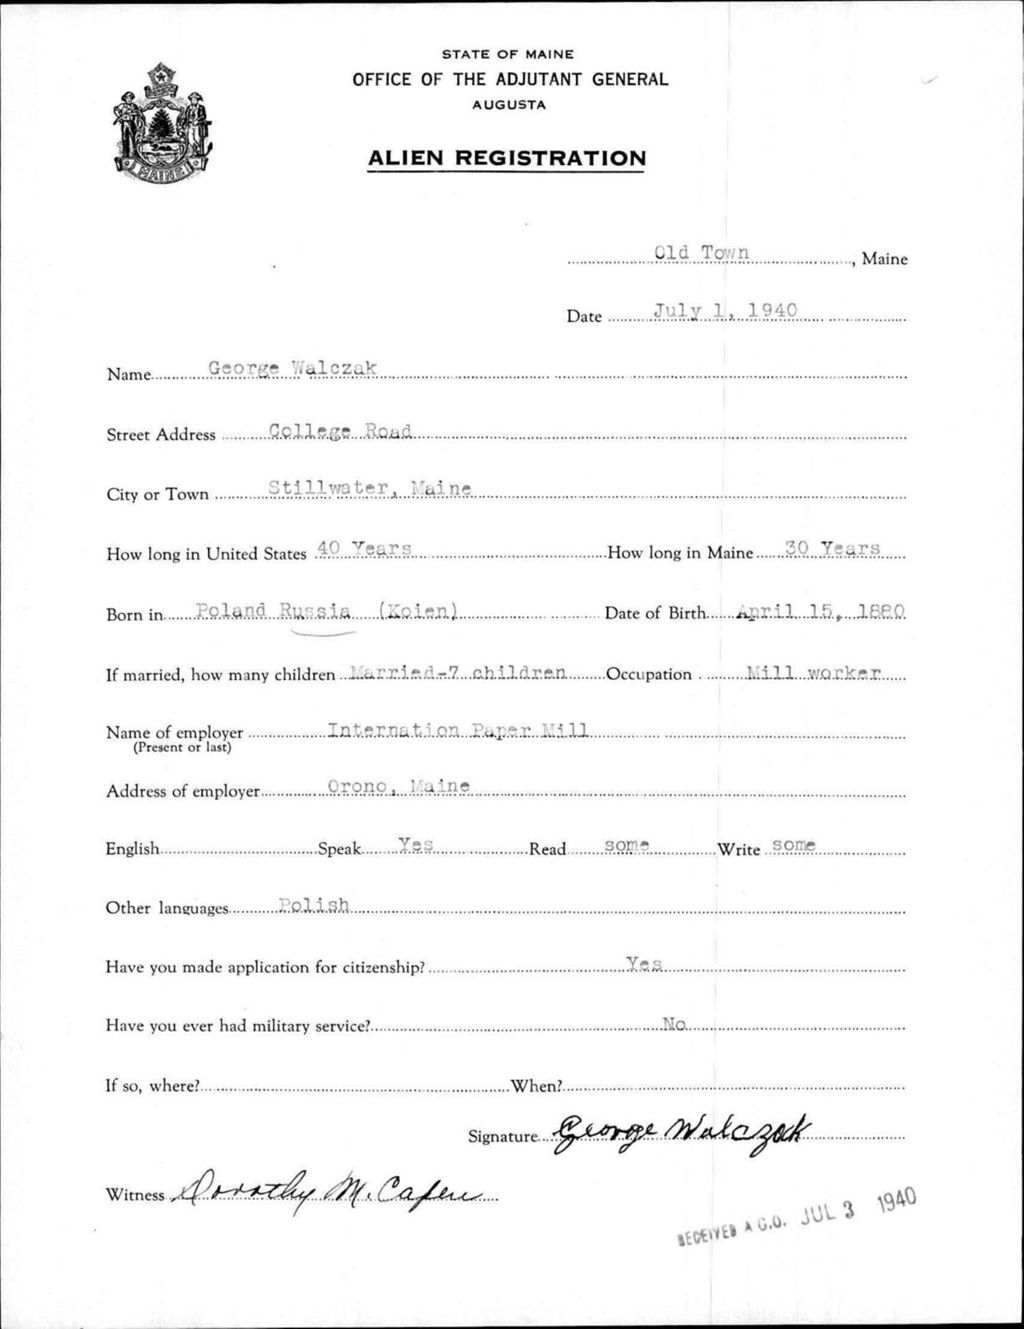 STATE OF MAINE
OFFICE OF THE ADJUTANT GENERAL
AUGUSTA
ALIEN REGISTRATION
MAINE
Old Town, Maine
Date July 1, 1940
Name George Walczak
Street Address College Road
City or Town Stillwater, Maine
How long in United States 40 Years How long in Maine 30 Years
Born in Poland Russia (Koien) Date of Birth April 15, 1880
If married, how many children Married-7 children Occupation Mill worker
Name of employer Internation Paper Mill
(Present or last)
Address of employer Orono, Maine
English Speak Yes Read some Write some
Other languages Polish
Have you made application for citizenship? Yes
Have you ever had military service? No
If so, where? When?
Signature George Walczak
Witness Dorothy M. Cafen
RECEIVED A.G.O. JUL 3 1940